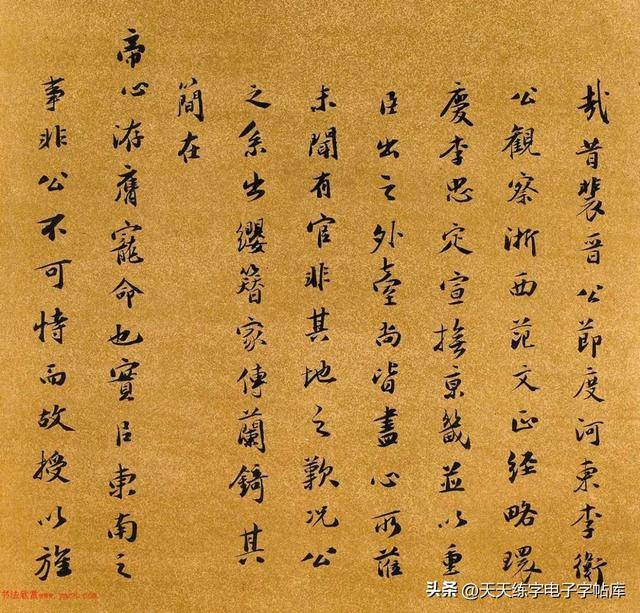 哉昔裴晋公節度河東李衛
公觀察浙西范文正經略環
慶李忠定宣撫京畿並以重
臣出之外臺尚皆盡心所蒞
未聞有官非其地之歎况公
之系出纓簪家傳蘭錡其
簡在
帝心洊膺寵命也實臣東南之
事非公不可恃而故授以旌
书法欣赏www.yac8.com
头条 @天天练字电子字帖库